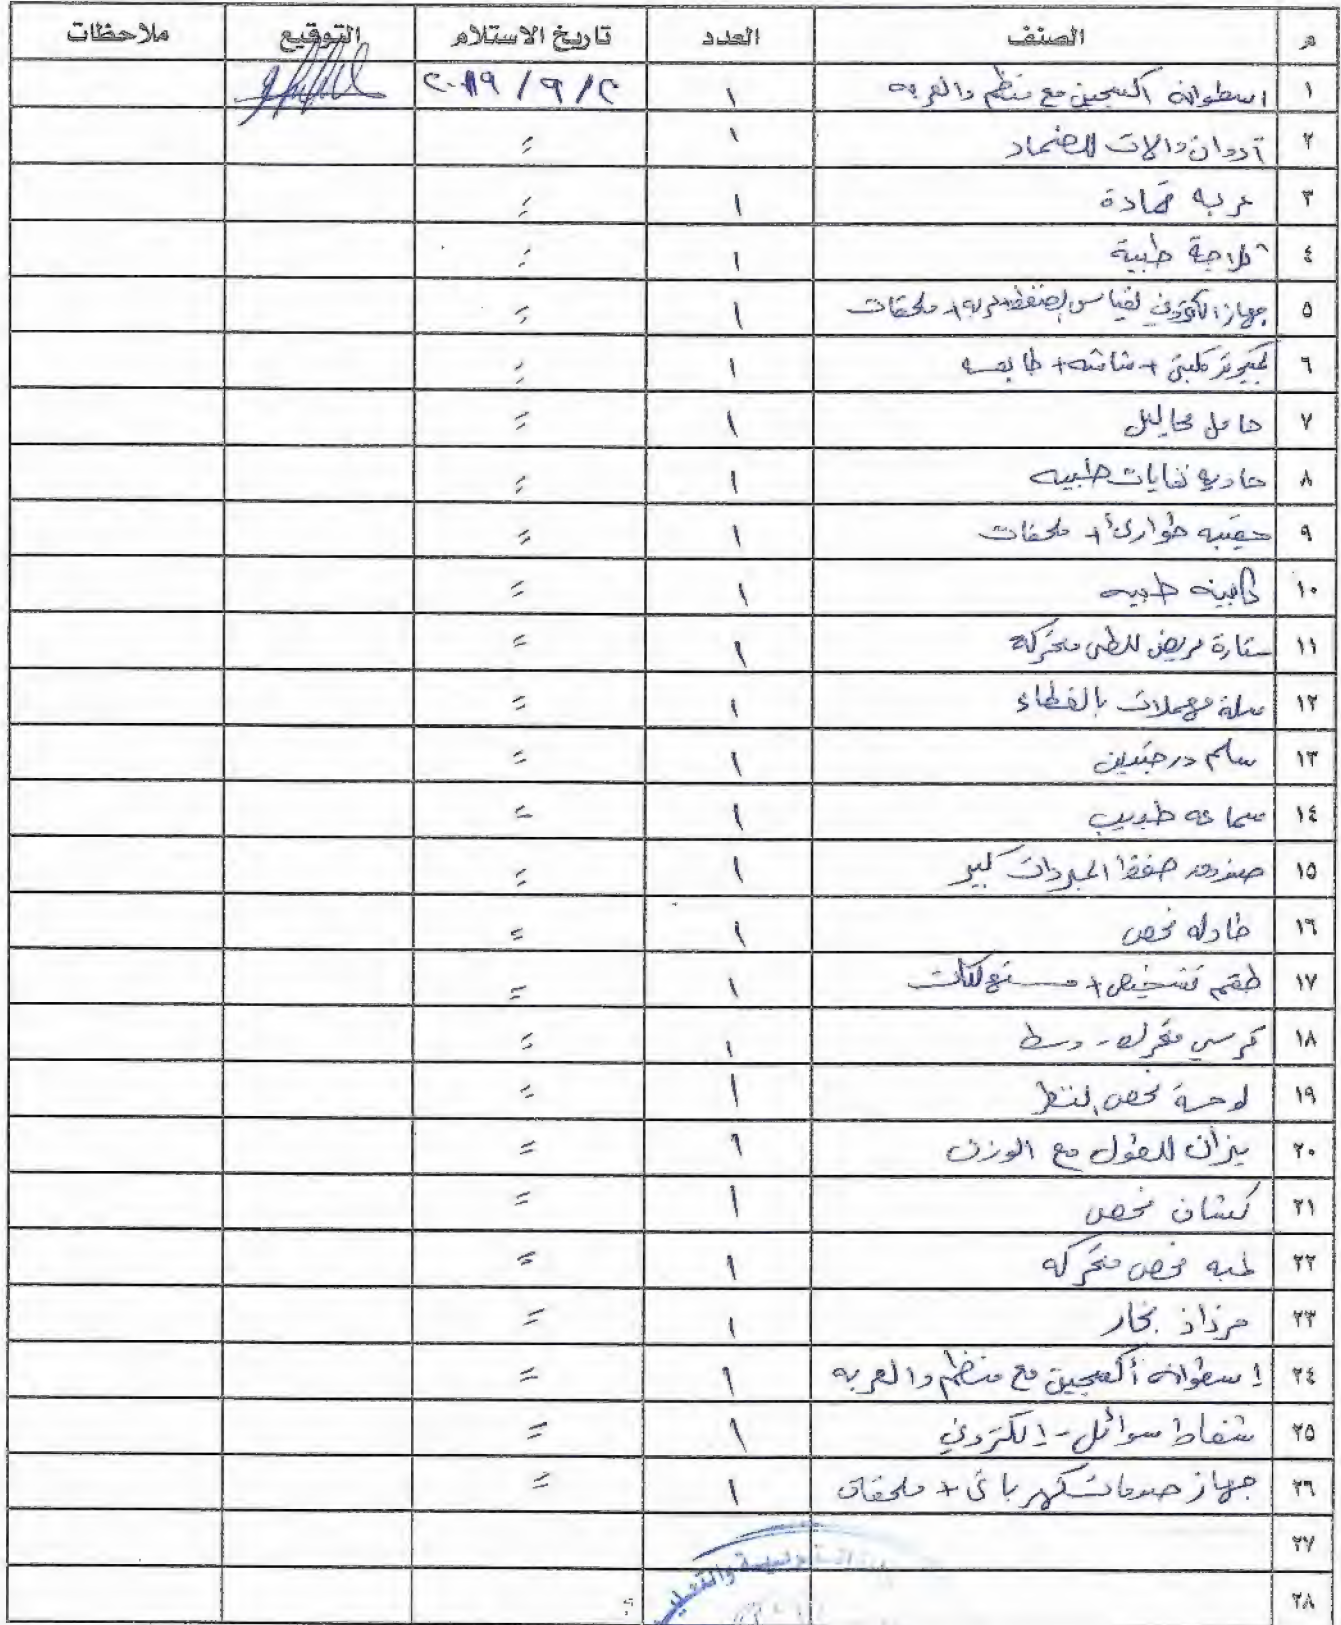 م الصنف العدد تاريخ الاستلام التوقيع ملاحظات
١ اسطوانه اكسجين مع منظم والعربه ١ ٢ / ٩ / ٢٠١٩
٢ أدوات والات للضماد ١ =
٣ عربه ضمادة ١ =
٤ ثلاجة طبية ١ =
٥ جهاز الكتروني لقياس الضغط + عربه + ملحقات ١ =
٦ كمبيوتر مكتبي + شاشه + طابعه ١ =
٧ حامل محاليل ١ =
٨ حاويه نفايات طبيه ١ =
٩ حقيبه طوارئ + ملحقات ١ =
١٠ كابينه طبيه ١ =
١١ ستارة مريض للطي متحركه ١ =
١٢ سلة مهملات بالغطاء ١ =
١٣ سلم درجتين ١ =
١٤ سماعه طبيب ١ =
١٥ صندوق حفظ المبردات كبير ١ =
١٦ طاوله فحص ١ =
١٧ طقم تشخيص + مستهلكات ١ =
١٨ كرسي متحرك - وسط ١ =
١٩ لوحة فحص النظر ١ =
٢٠ يزان للطول مع الوزن ١ =
٢١ كشاف فحص ١ =
٢٢ لمبه فحص متحركه ١ =
٢٣ مرذاذ بخار ١ =
٢٤ إسطوانه أكسجين مع منظم والعربه ١ =
٢٥ شفاط سوائل - إلكتروني ١ =
٢٦ جهاز صدمات كهربائى + ملحقات ١ =
٢٧
٢٨ =